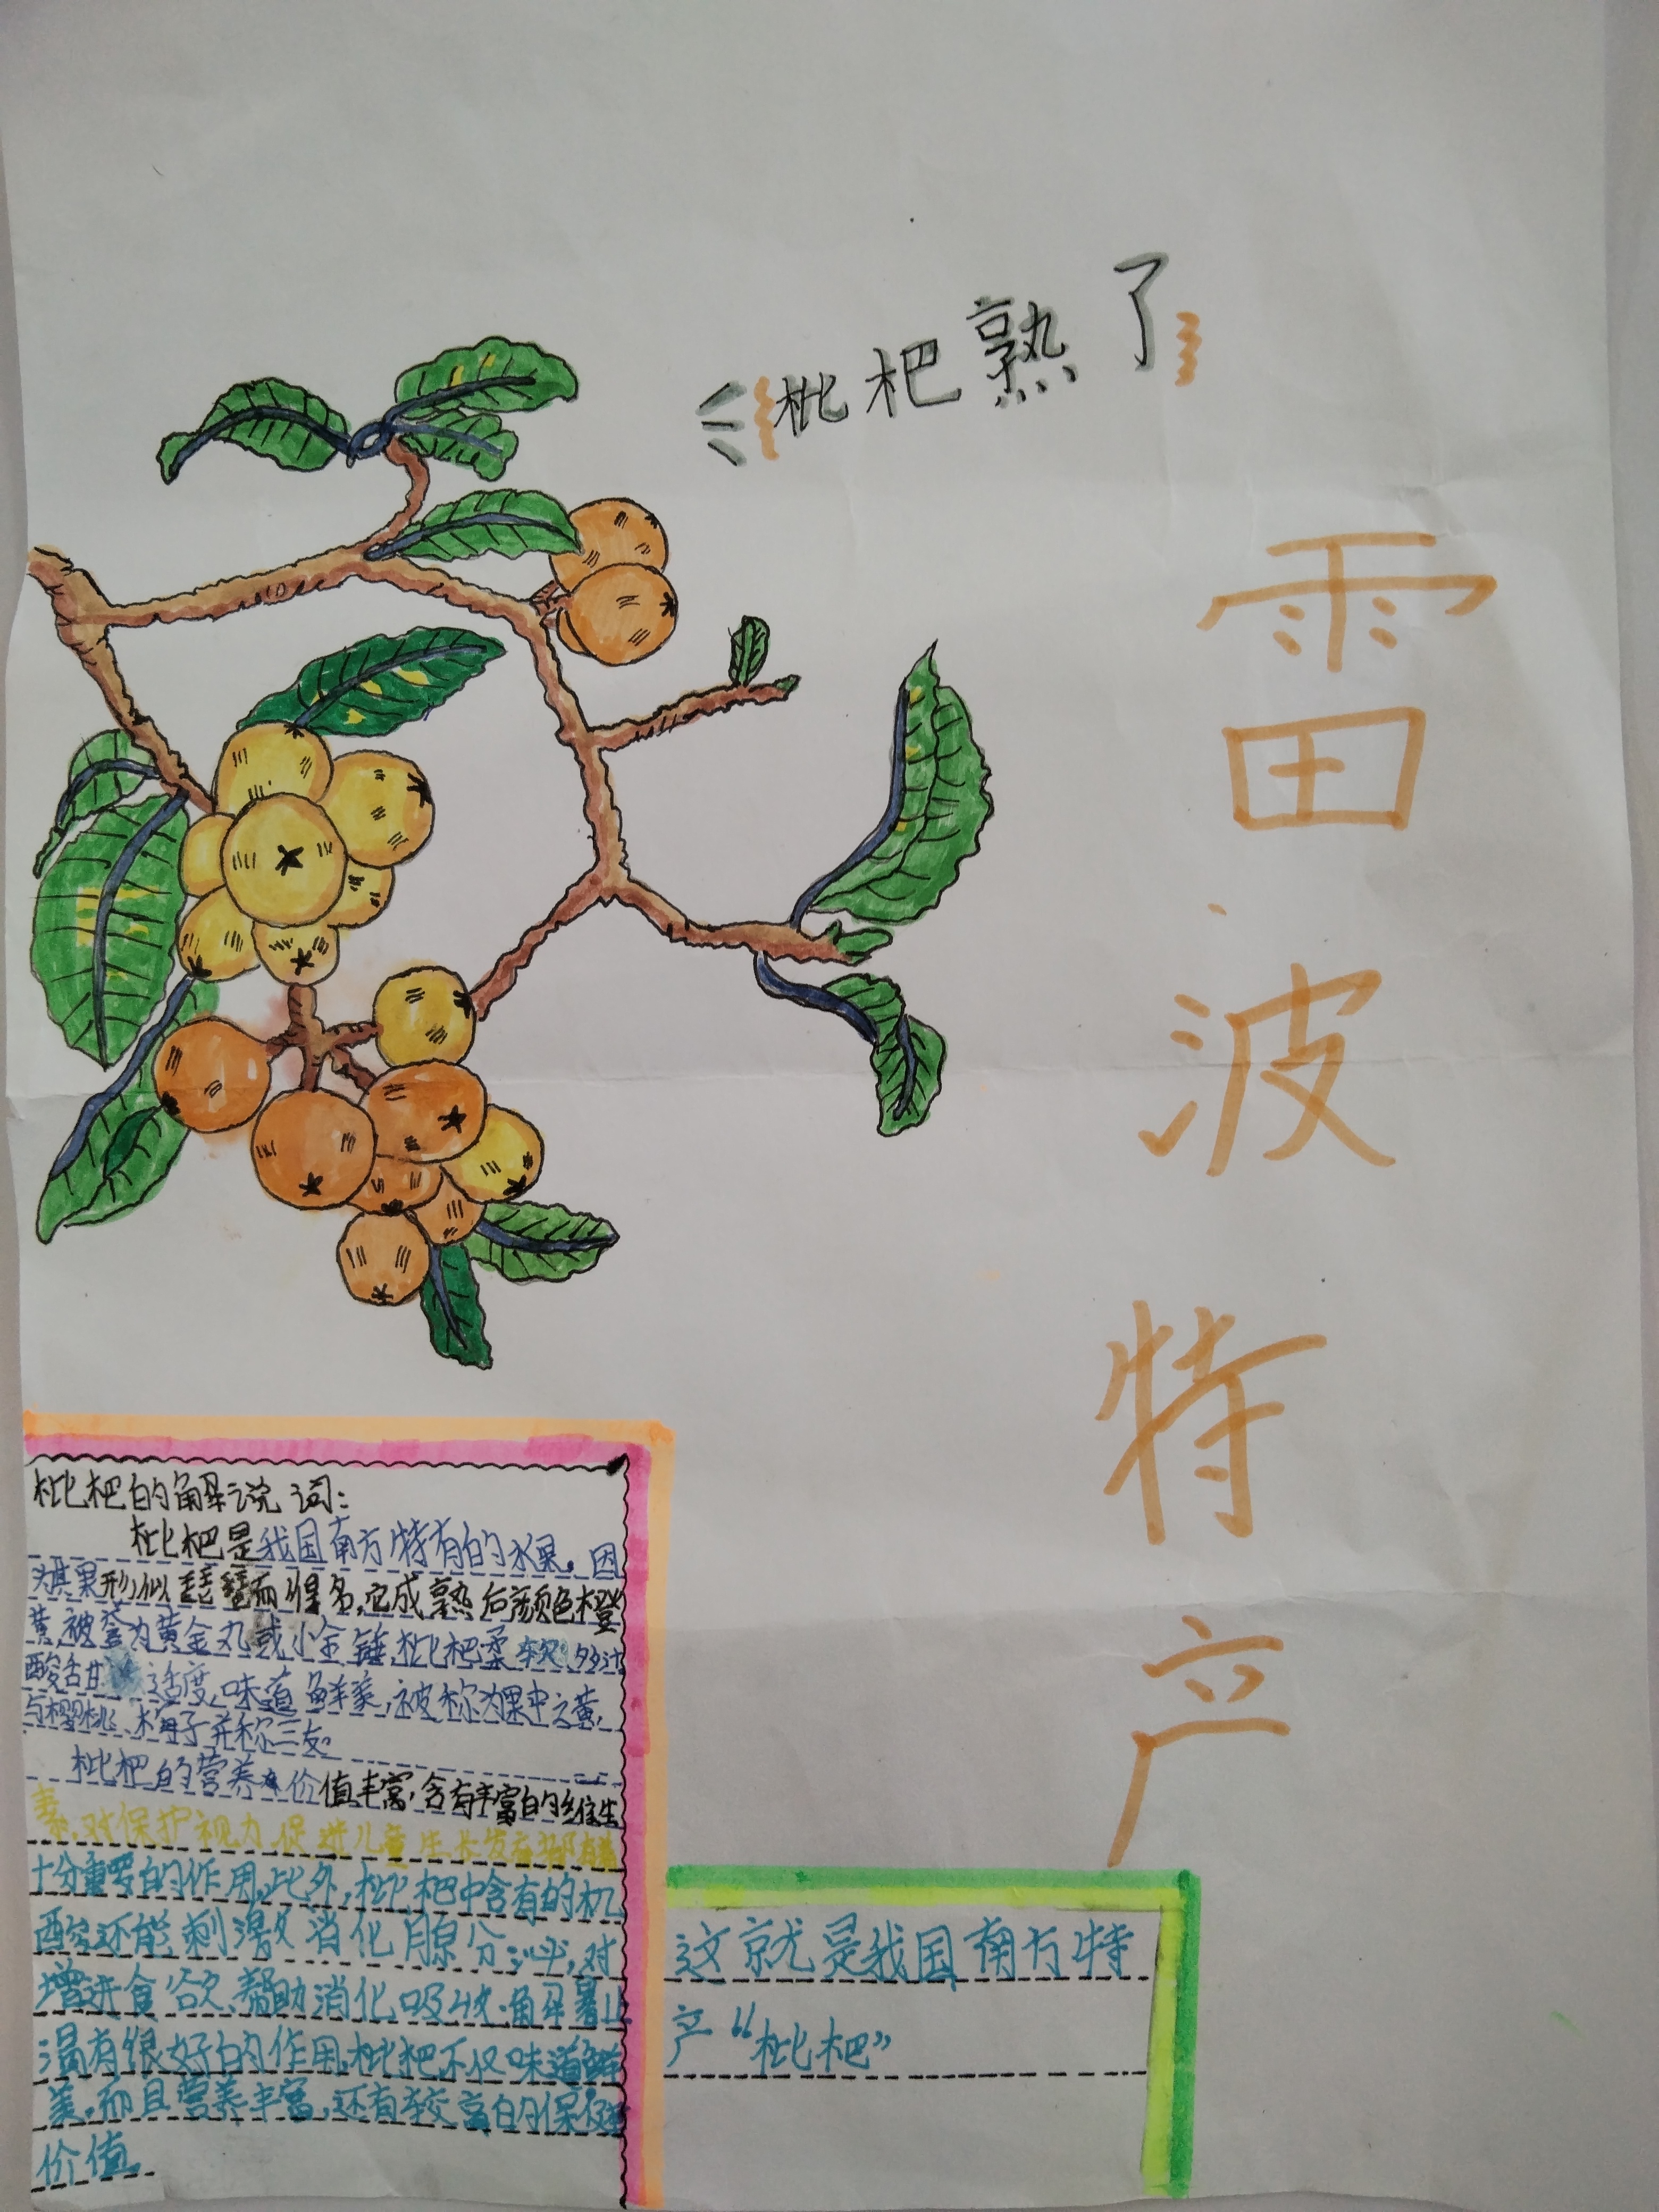 枇杷熟了
雷波特产
枇杷的解说词:
枇杷是我国南方特有的水果。因
为其果形似琵琶而得名,它成熟后颜色橙
黄,被誉为黄金丸或小金锤,枇杷柔软多汁
酸舌甘 适度,味道鲜美,被称为果中之黄,
与樱桃、梅子并称三友。
枇杷的营养价值丰富,含有丰富的维生
素,对保护视力促进儿童生长发育都有着
十分重要的作用,此外,枇杷中含有的机
酸还能刺激消化腺分泌,对
增进食欲、帮助消化吸收、解暑止
渴有很好的作用,枇杷不仅味道鲜
美,而且营养丰富,还有较高的保健
价值。
这就是我国南方特
产“枇杷”